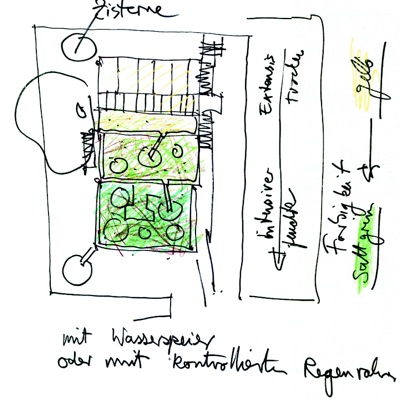 Zisterne
Extensiv
trocken
intensiver
feuchte
Farbigkeit
gelb
Sattgrün
mit Wasserspeier
oder mit kontrollierten